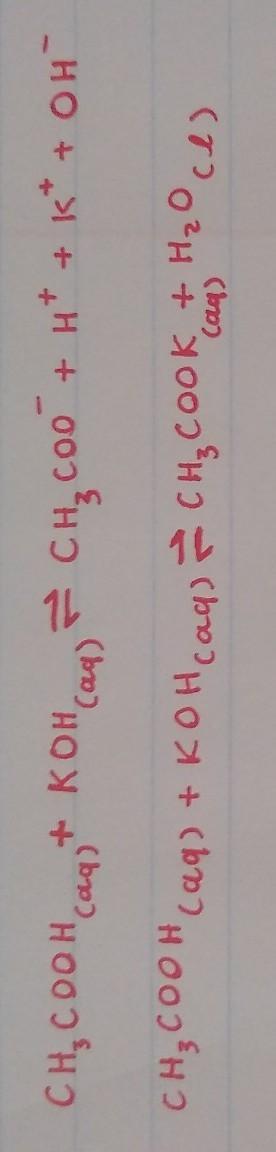 CH₃COOH(aq) + KOH(aq) ⇌ CH₃COO⁻ + H⁺ + K⁺ + OH⁻
CH₃COOH(aq) + KOH(aq) ⇌ CH₃COOK(aq) + H₂O(l)